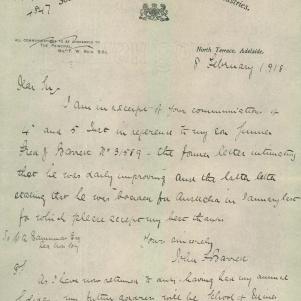 4847
ALL COMMUNICATIONS TO BE ADDRESSED TO
THE PRINCIPAL
North Terrace, Adelaide.
8 February 1918
Dear Sir,
I am in receipt of your communications of
4th and 5th Inst in reference to my son, Gunner
Fred J. No 31589 – the former letter intimating
that he was daily improving and the latter letter
stating that he was boarded for Australia in January last
for which please accept my best thanks
Yours sincerely
John
As I have now returned to duty – having had my annual
my address will be School of Mines